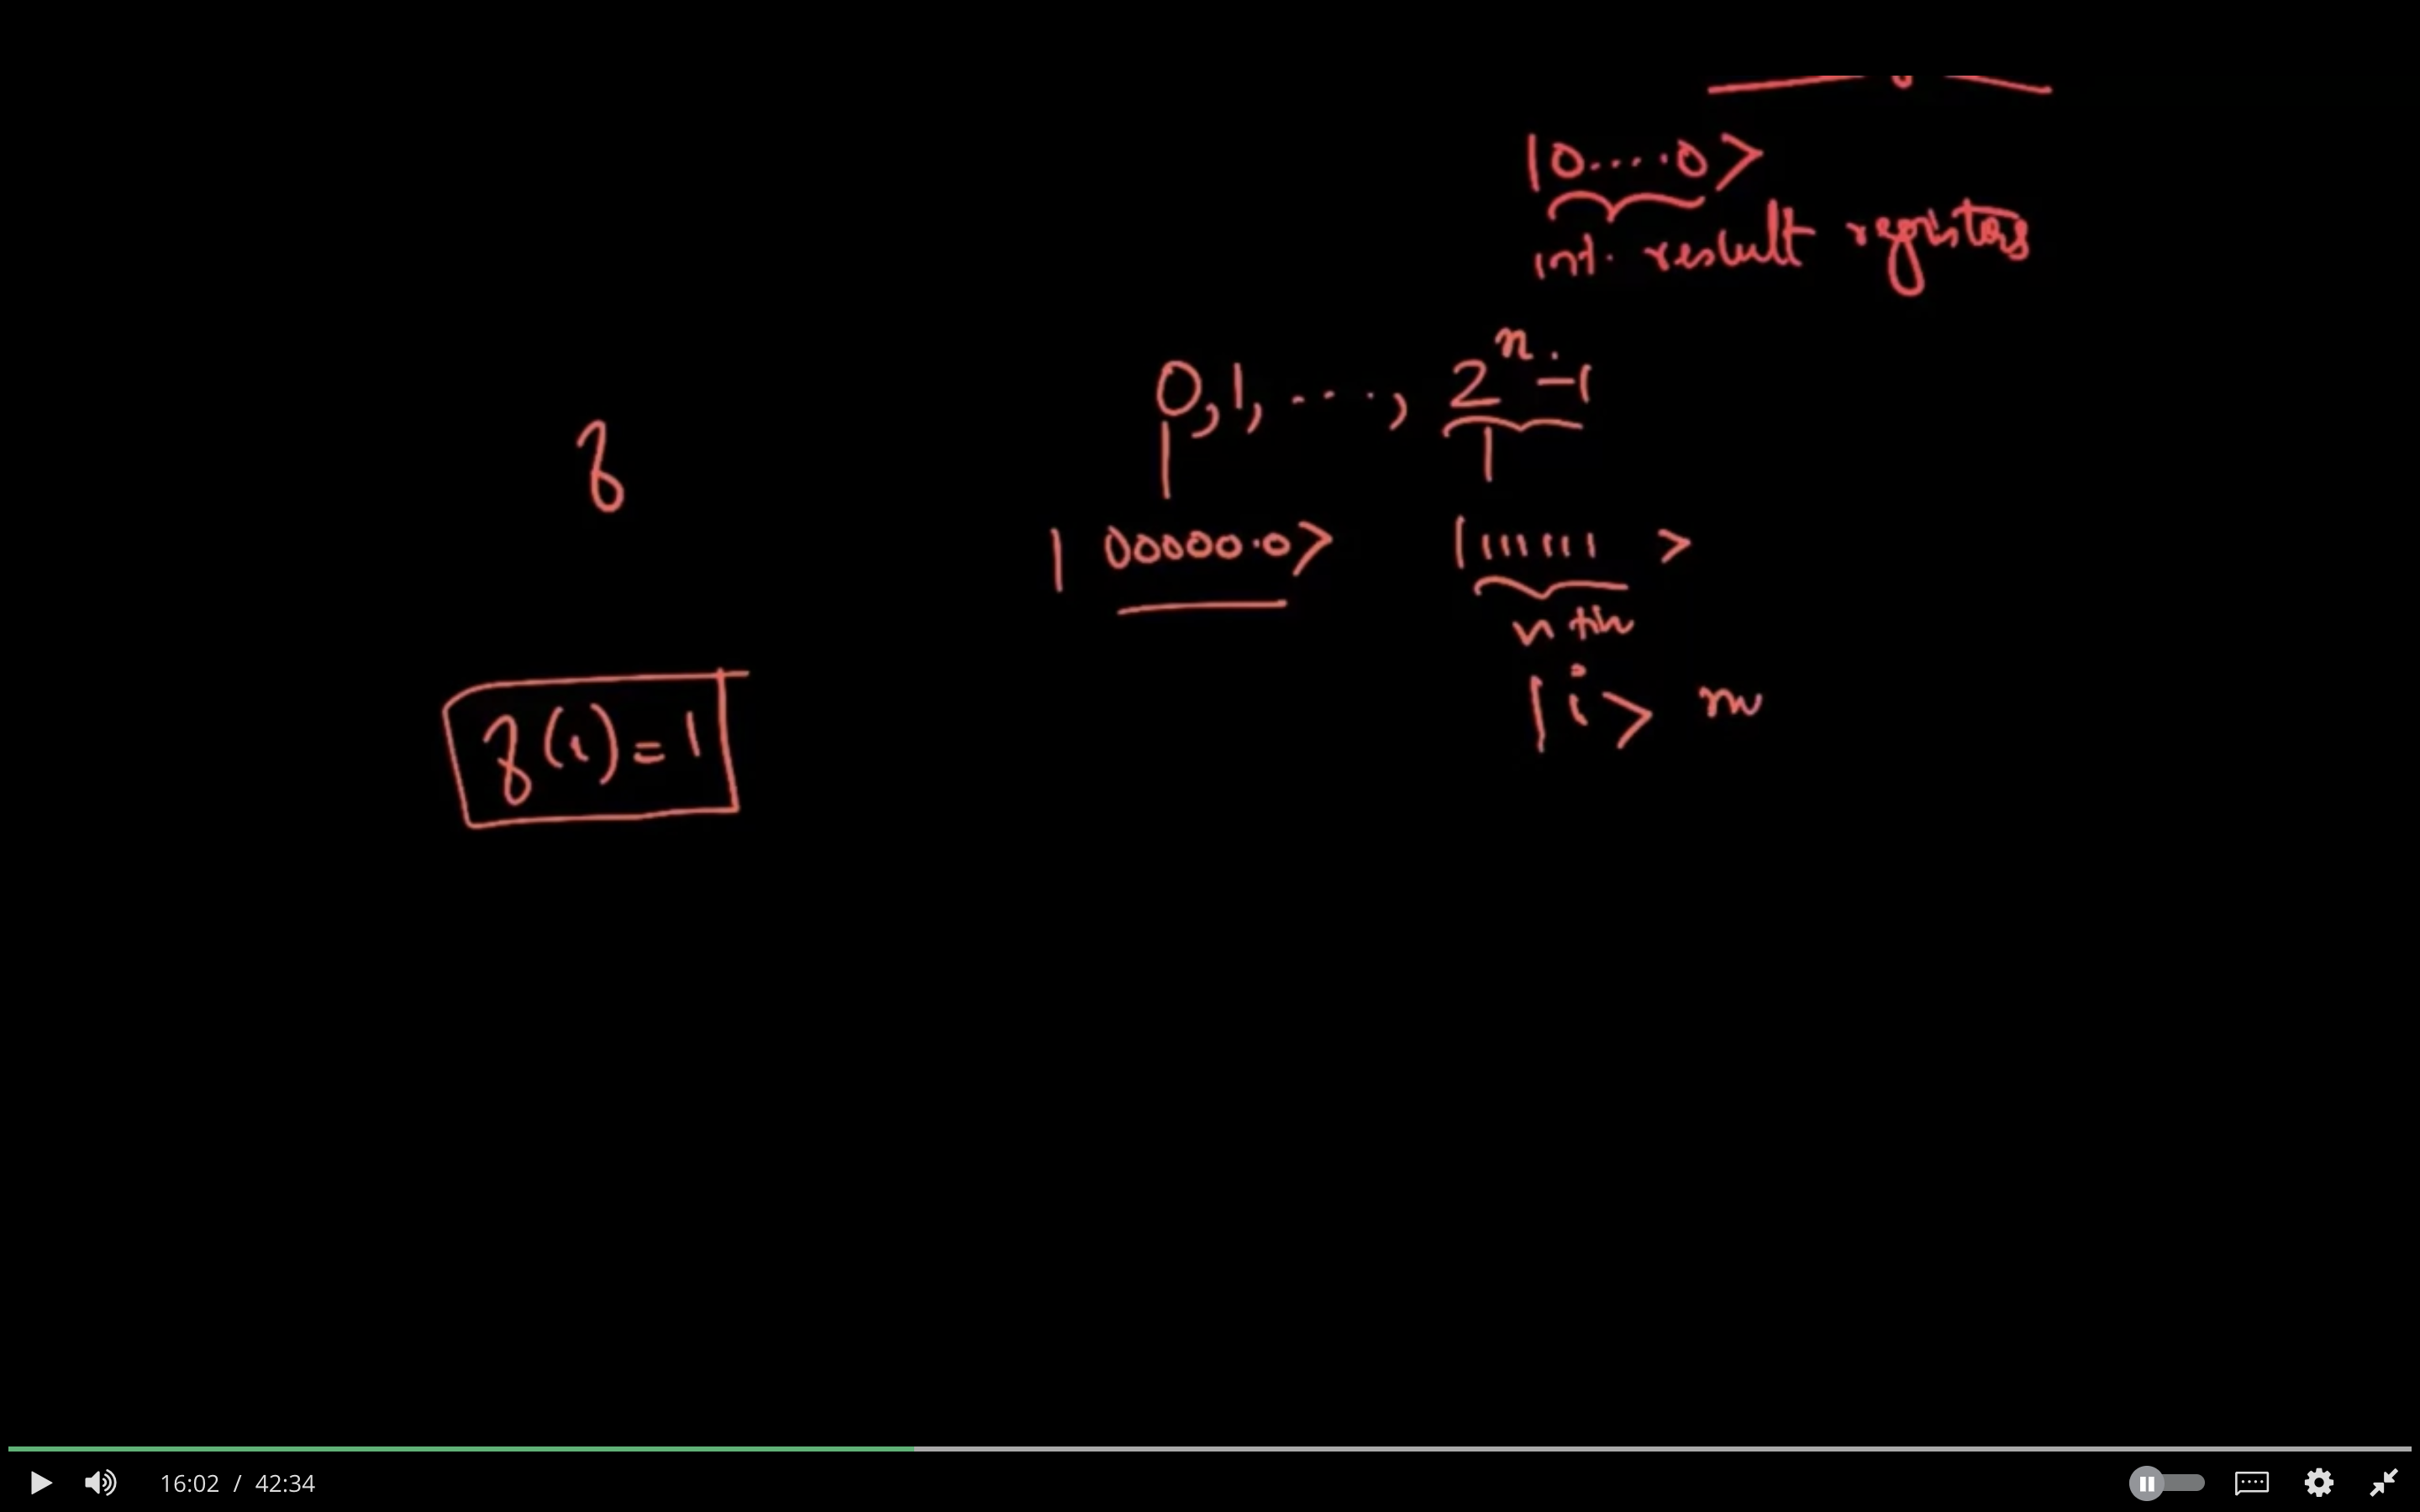 |0....0>
int. result registers
0,1,...,2^n-1
f
|00000.0> |111111>
|i> m
f(i)=1
16:02 / 42:34